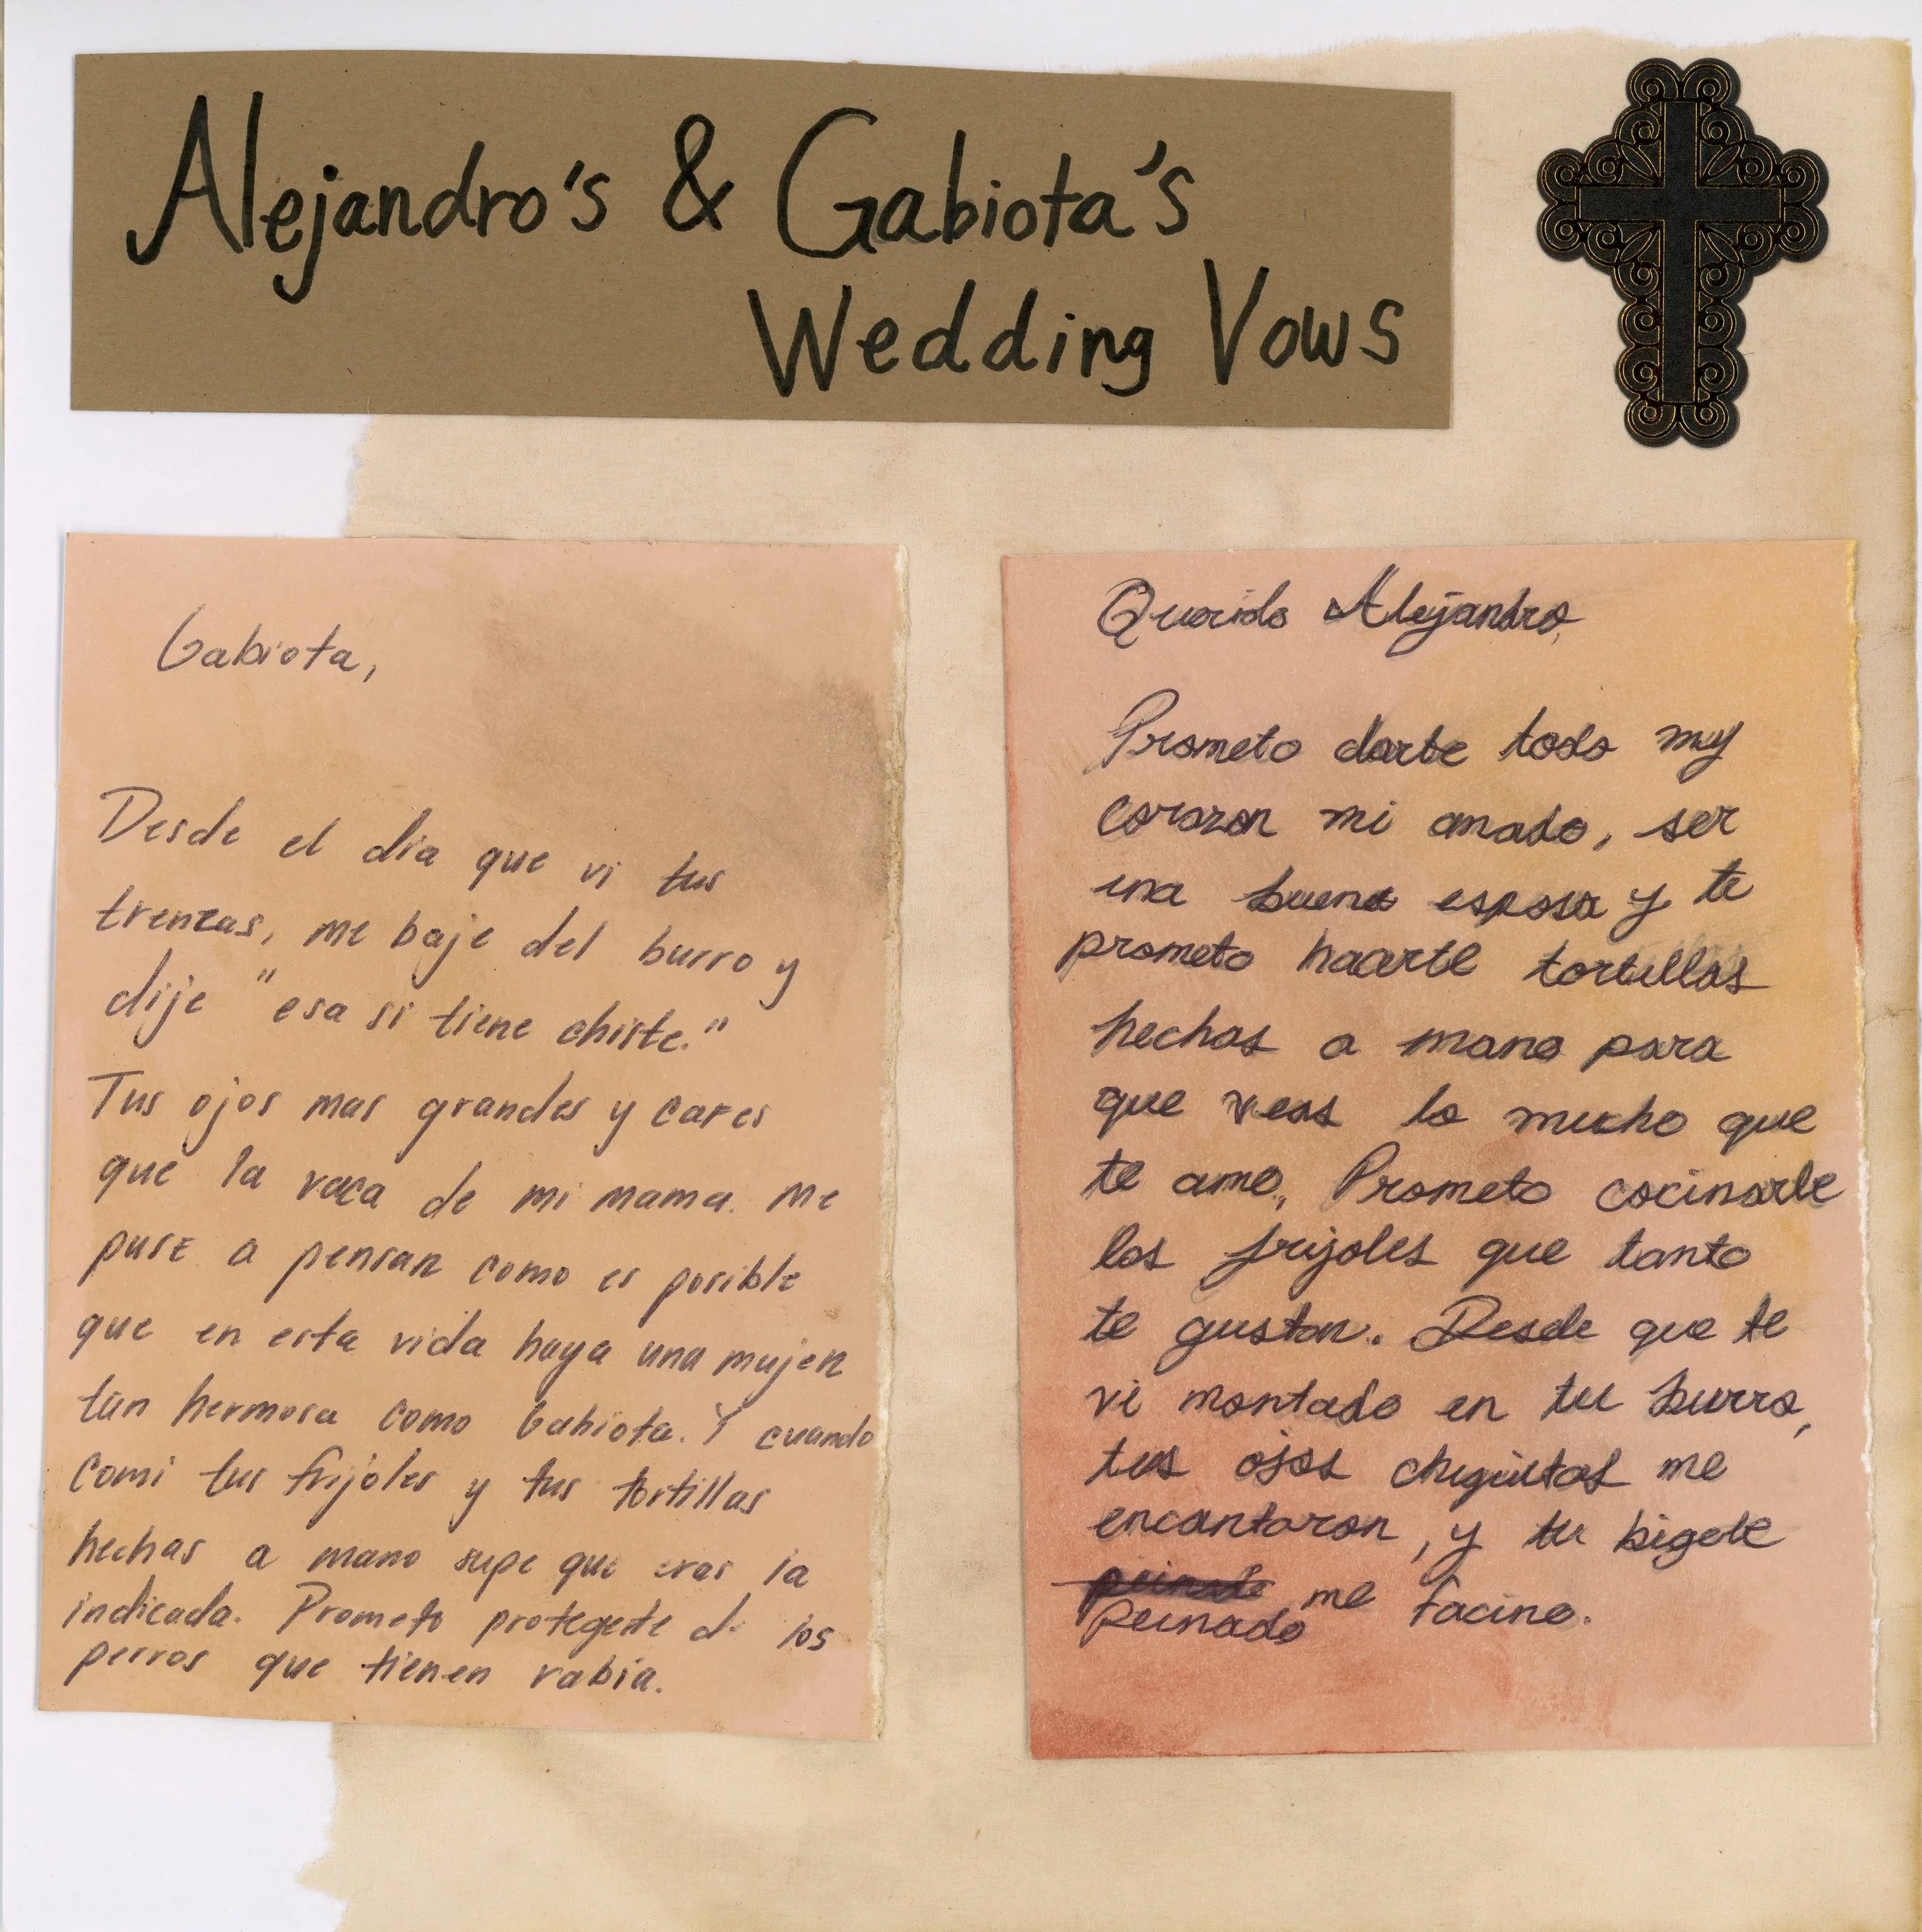 Alejandro's & Gabiota's
Wedding Vows
Gabiota,
Desde el dia que vi tus
trenzas, me baje del burro y
dije "esa si tiene chiste."
Tus ojos mas grandes y cafes
que la vaca de mi mama. Me
puse a pensar como es posible
que en esta vida haya una mujer
tan hermosa como Gabiota. Y cuando
comi tus frijoles y tus tortillas
hechas a mano supe que eras la
indicada. Prometo protegerte de los
perros que tienen rabia.
Querido Alejandro,
Prometo darte todo my
corazon mi amado, ser
una buena esposa y te
prometo haarte tortillas
hechas a mano para
que veas lo mucho que
te amo. Prometo cocinarle
los frijoles que tanto
te gustan. Desde que te
vi montado en tu burro,
tus ojos chiquitos me
encantaron, y tu bigote
peinado me facino.